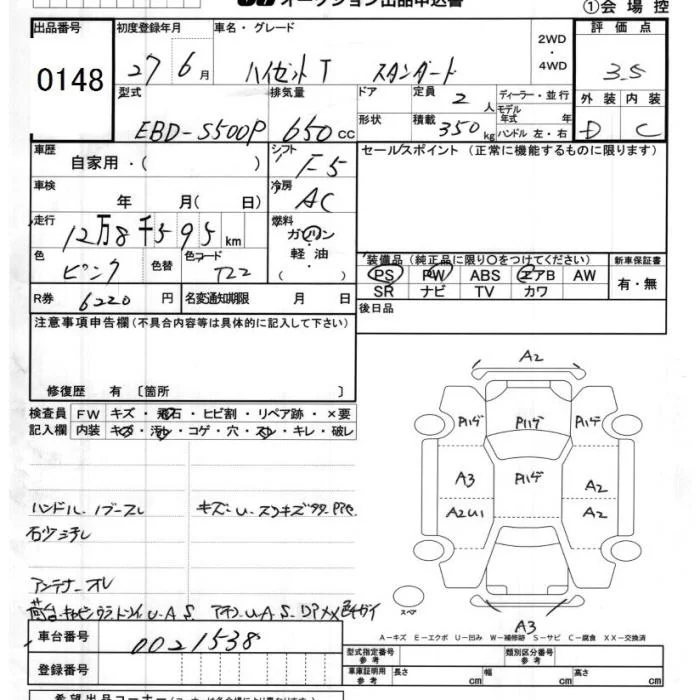 オークション出品申込書 ①会場控
出品番号 初度登録年月 車名・グレード 2WD・4WD 評価点
0148 27 6月 ハイゼットT スタンダード 3.5
型式 排気量 ドア 定員 2人 ディーラー・並行 外装 内装
EBD-S500P 650cc 形状 積載 350kg モデル年式 年 ハンドル 左・右 D C
車歴 自家用・( ) シフト F5 セールスポイント (正常に機能するものに限ります)
車検 年 月( 日) 冷房 AC
走行 12万8千595km 燃料 ガソリン 軽油 ・( )
色 ピンク 色替 色コード T22 装備品 (純正品に限り○をつけてください) 新車保証書
PS PW ABS エアB AW 有・無
SR ナビ TV カワ
R券 6220円 名変通知期限 月 日 後日品
注意事項申告欄 (不具合内容等は具体的に記入して下さい)
修復歴 有 〔箇所 〕
検査員 FW キズ・飛石・ヒビ割・リペア跡・×要
記入欄 内装 キズ・汚れ・コゲ・穴・スレ・キレ・破レ
A2
Pハゲ Pハゲ Pハゲ
A3 Pハゲ A2
A2U1 A2
スペア
A3
ハンドル・ノブ スレ キズ・U・スリキズ
アンテナ オレ
荷台・キャビンウラ U.A.S.
A-キズ E-エクボ U-凹み W-補修跡 S-サビ C-腐食 XX-交換済
車台番号 0021538
型式指定番号 参考 類別区分番号 参考
登録番号 車庫証明用 参考 長さ cm 幅 cm 高さ cm
希望出品コーナー